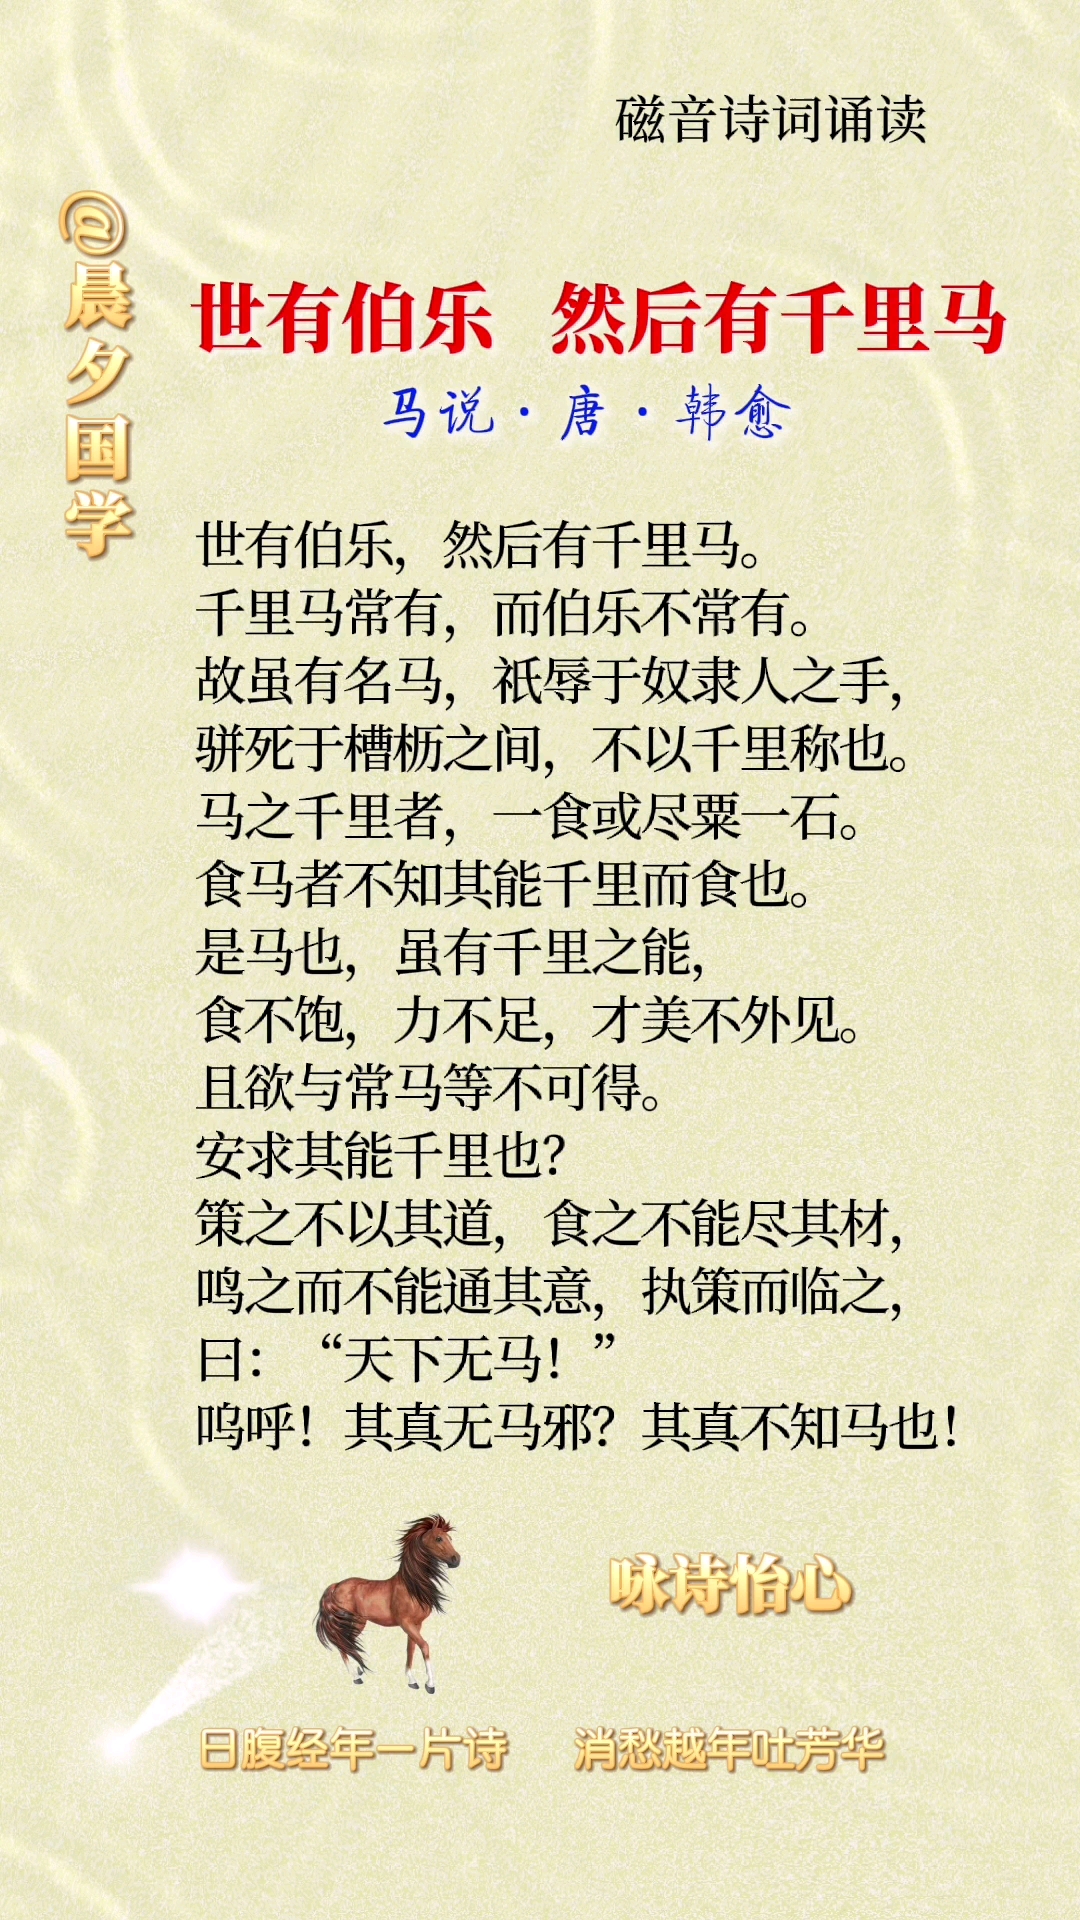 磁音诗词诵读
@晨夕国学
世有伯乐 然后有千里马
马说·唐·韩愈
世有伯乐，然后有千里马。
千里马常有，而伯乐不常有。
故虽有名马，祇辱于奴隶人之手，
骈死于槽枥之间，不以千里称也。
马之千里者，一食或尽粟一石。
食马者不知其能千里而食也。
是马也，虽有千里之能，
食不饱，力不足，才美不外见。
且欲与常马等不可得。
安求其能千里也？
策之不以其道，食之不能尽其材，
鸣之而不能通其意，执策而临之，
曰：“天下无马！”
呜呼！其真无马邪？其真不知马也！
咏诗怡心
日腹经年一片诗 消愁越年吐芳华